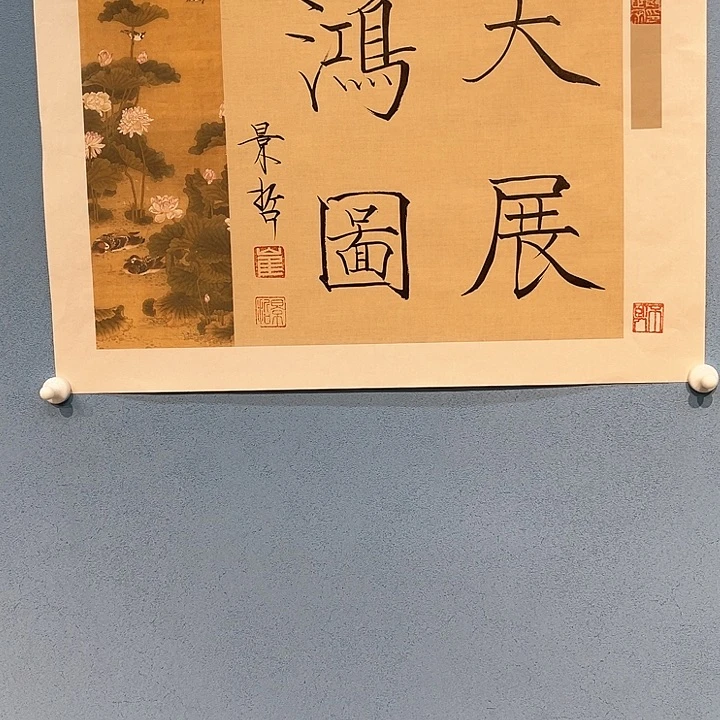 大展
鴻圖
景哲